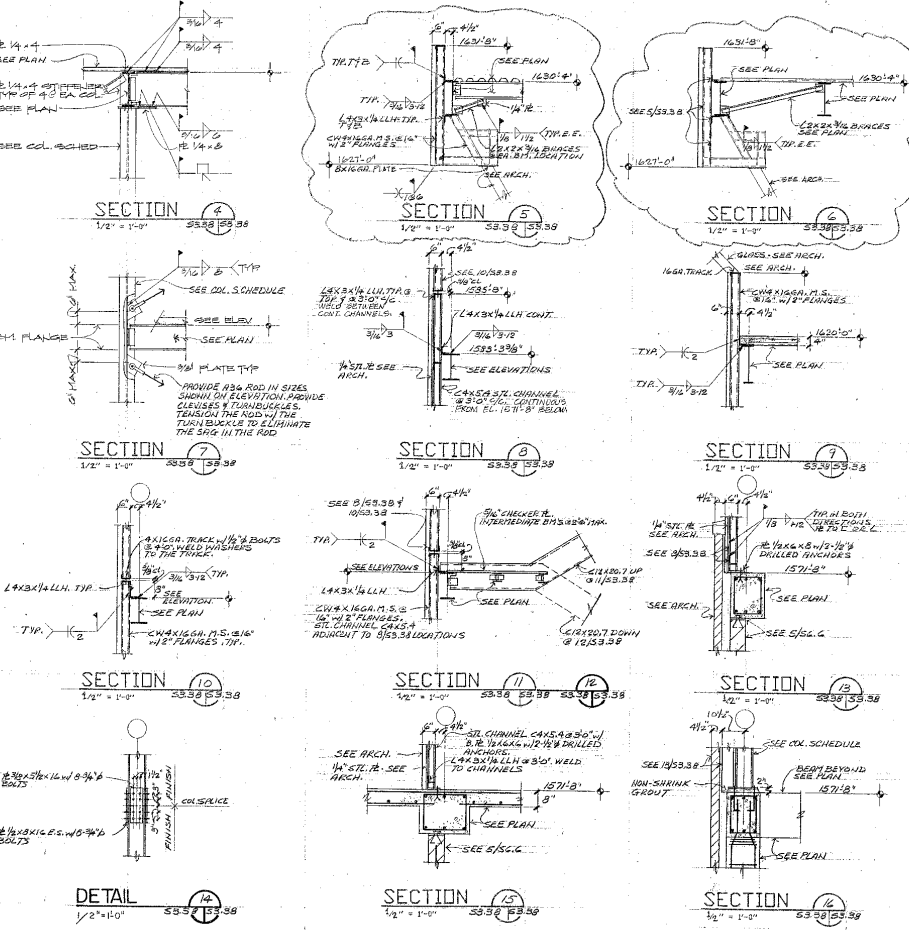 3/16 4
3/16 4
℄ 1/4 x 4
SEE PLAN
SEE PLAN
3/16 6
℄ 1/4 x 8
SEE COL. SCHED
SECTION 4
1/2" = 1'-0" S3.38 S3.38
6" 4 1/2"
1631'-8"
TYP. T & B
SEE PLAN
1630'-4"
TYP.
3/16 3-12
1/4" ℄
L4X3X1/4 LLH-TYP.
T & B
CW4X16GA. M.S. @ 16"
W/ 2" FLANGES
1/8 1 1/2 TYP. E.E.
L2X2X3/16 BRACES
@ EA. BM. LOCATION
1627'-0"
8X16GA. PLATE
SEE ARCH.
SECTION 5
1/2" = 1'-0" S3.38 S3.38
1631'-8"
SEE PLAN
1630'-4"
SEE PLAN
SEE 5/S3.38
L2X2X3/16 BRACES
SEE PLAN
1/8 1 1/2 TYP. E.E.
1627'-0"
SEE ARCH.
SECTION 6
1/2" = 1'-0" S3.38 S3.38
3/16 8 TYP
SEE COL. SCHEDULE
6" MAX.
SEE ELEV
FLANGE
SEE PLAN
6" MAX.
3/8 PLATE TYP
PROVIDE A36 ROD IN SIZES
SHOWN ON ELEVATION. PROVIDE
CLEVISES & TURNBUCKLES.
TENSION THE ROD W/ THE
TURN BUCKLE TO ELIMINATE
THE SAG IN THE ROD
SECTION 7
1/2" = 1'-0" S3.38 S3.38
6" 4 1/2"
SEE 10/S3.38
3/8 CL
L4X3X1/4 LLH. TYP. @
TOP & @ 3'-0" C/C.
WELD BETWEEN
CONT. CHANNELS.
1535'-8"
L4X3X1/4 LLH CONT.
3/16 3
3/16 3-12
1533'-3 3/8"
1/4" STL. ℄ SEE
ARCH.
SEE ELEVATIONS
C4X5.4 STL. CHANNEL
@ 3'-0" C/C. CONTINUOUS
FROM EL. 1571'-8" BELOW
SECTION 8
1/2" = 1'-0" S3.38 S3.38
GLASS - SEE ARCH.
SEE ARCH.
16GA. TRACK
CW4X16GA. M.S.
@ 16" W/ 2" FLANGES
6" 4 1/2"
1620'-0"
4"
TYP. 2
SEE PLAN
TYP. 3/16 3-12
SECTION 9
1/2" = 1'-0" S3.38 S3.38
6" 4 1/2"
4X16GA. TRACK W/ 1/2"φ BOLTS
@ 4'-0". WELD WASHERS
TO THE TRACK.
3/16 3-12 TYP.
L4X3X1/4 LLH. TYP.
3"
SEE
ELEVATION
SEE PLAN
TYP. 2
CW4X16GA. M.S. @ 16"
W/ 2" FLANGES. TYP.
SECTION 10
1/2" = 1'-0" S3.38 S3.38
SEE 8/S3.38 &
10/S3.38
6" 4 1/2"
5/16" CHECKER ℄.
INTERMEDIATE BM'S @ 2'-6" MAX.
TYP. 2
SEE ELEVATIONS
C12X20.7 UP
@ 11/S3.38
L4X3X1/4 LLH
SEE PLAN
CW4X16GA. M.S. @
16" W/ 2" FLANGES.
STL. CHANNEL C4X5.4
ADJACENT TO 8/S3.38 LOCATIONS
C12X20.7 DOWN
@ 12/S3.38
SECTION 11 12
1/2" = 1'-0" S3.38 S3.38 S3.38
4 1/2" 6" 4 1/2"
TYP. IN BOTH
DIRECTIONS
1/4" STL. ℄
SEE ARCH.
SEE 8/S3.38
℄ 1/2 X 6 X 8 W/ 2-1/2"φ
DRILLED ANCHORS
1571'-8"
SEE PLAN
SEE ARCH.
SEE 5/S6.6
SECTION 13
1/2" = 1'-0" S3.38 S3.38
1 1/2"
BOLTS
3" 3"
FINISH FINISH
COL SPLICE
℄ 1/2 X 8 X 16 E.S. W/ 8-3/4"φ
BOLTS
DETAIL 14
1/2"=1'-0" S3.38 S3.38
6" 4 1/2"
STL. CHANNEL C4X5.4 @ 3'-0" W/
℄ 1/2X6X6 W/ 2-1/2"φ DRILLED
ANCHORS.
L4X3X1/4 LLH @ 3'-0". WELD
TO CHANNELS
SEE ARCH.
1/4" STL. ℄. SEE
ARCH.
1571'-8"
8"
SEE PLAN
SEE 5/S6.6
SECTION 15
1/2" = 1'-0" S3.38 S3.38
10 1/2"
4 1/2"
SEE COL. SCHEDULE
SEE 13/S3.38
BEAM BEYOND
SEE PLAN
NON-SHRINK
GROUT
2"
1571'-8"
SEE PLAN
SECTION 16
1/2" = 1'-0" S3.38 S3.38